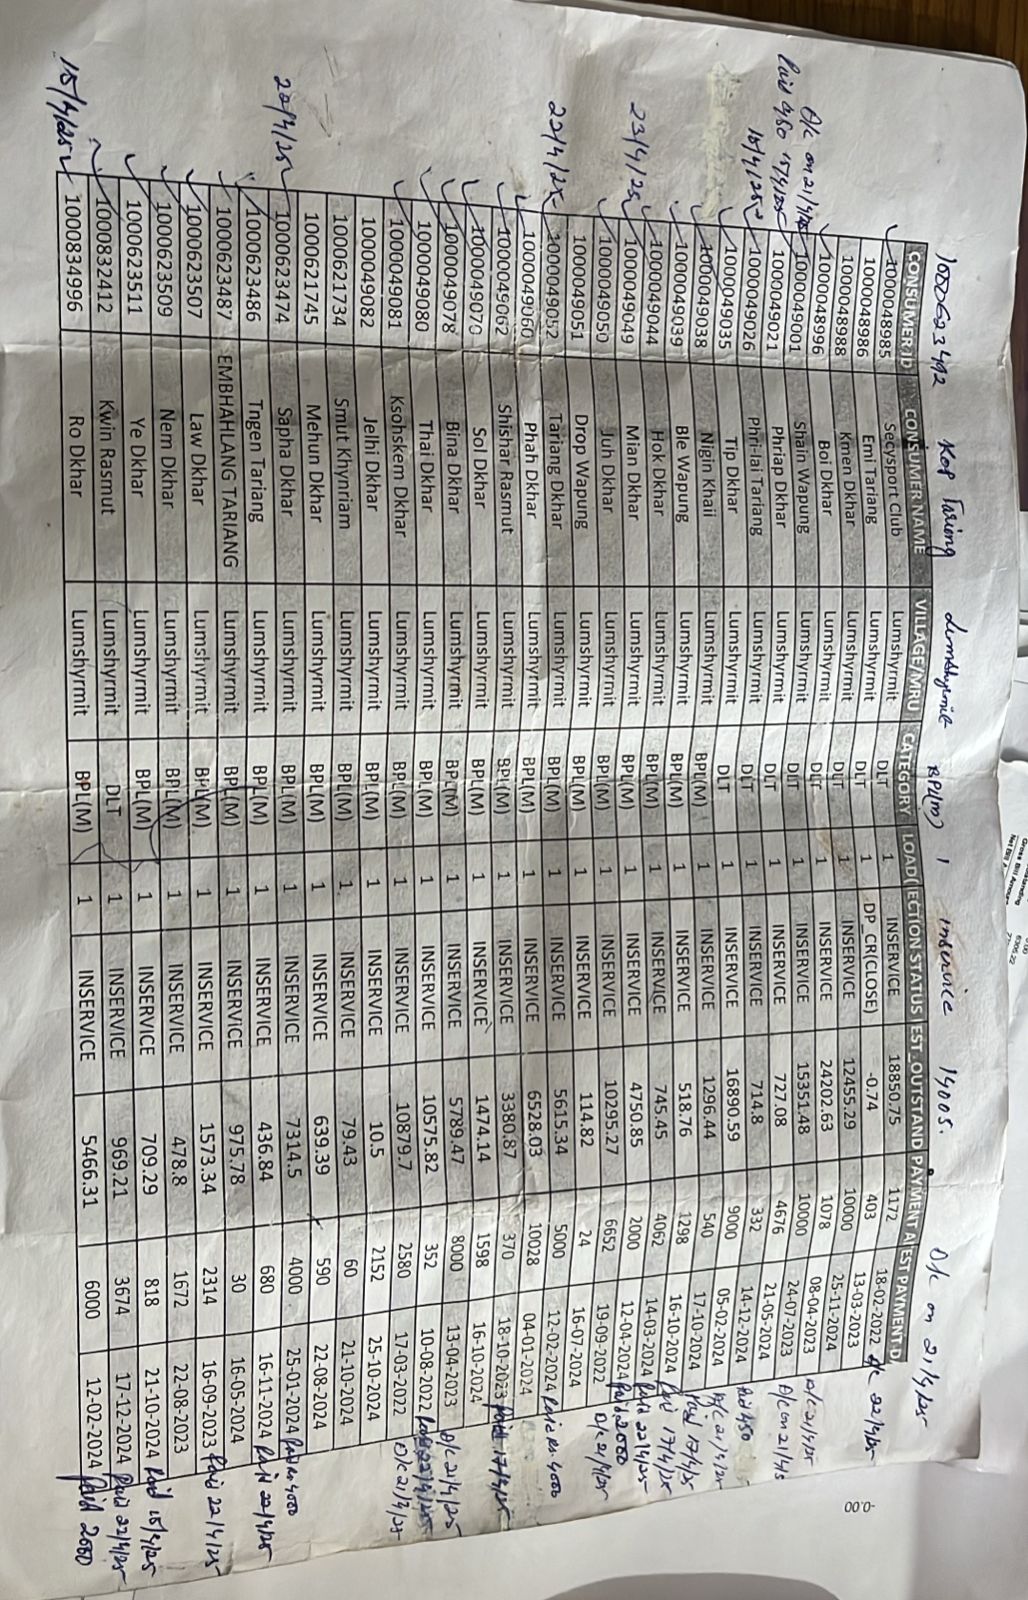 100623492 Kop Tariang Lumshyrmit BPL(M) 1 inservice 14005. D/c on 21/4/25
CONSUMER ID CONSUMER NAME VILLAGE/MRU CATEGORY LOAD ECTION STATUS EST_OUTSTAND PAYMENT A EST PAYMENT_D
1000048985 Secysport Club Lumshyrmit DLT 1 INSERVICE 18850.75 1172 18-02-2022 D/c 22/4/25
1000048986 Emi Tariang Lumshyrmit DLT 1 DP_CR(CLOSE) -0.74 403 13-03-2023
1000048988 Kmen Dkhar Lumshyrmit DLT 1 INSERVICE 12455.29 10000 25-11-2024
1000048996 Boi Dkhar Lumshyrmit DLT 1 INSERVICE 24202.63 1078 08-04-2023 D/c 21/4/25
D/c on 21/4/25
Paid 450 15/4/25 1000049001 Shain Wapung Lumshyrmit DLT 1 INSERVICE 15351.48 10000 24-07-2023 D/c on 21/4/5
1000049021 Phriap Dkhar Lumshyrmit DLT 1 INSERVICE 727.08 4676 21-05-2024
15/4/25 1000049026 Phri-lai Tariang Lumshyrmit DLT 1 INSERVICE 714.8 332 14-12-2024 Paid 450
1000049035 Tip Dkhar Lumshyrmit DLT 1 INSERVICE 16890.59 9000 05-02-2024 D/c 21/4/25
1000049038 Nigin Khaii Lumshyrmit BPL(M) 1 INSERVICE 1296.44 540 17-10-2024 Paid 17/4/25
1000049039 Ble Wapung Lumshyrmit BPL(M) 1 INSERVICE 518.76 1298 16-10-2024 Paid 17/4/25
1000049044 Hok Dkhar Lumshyrmit BPL(M) 1 INSERVICE 745.45 4062 14-03-2024 Paid 22/4/25
23/4/25 1000049049 Mian Dkhar Lumshyrmit BPL(M) 1 INSERVICE 4750.85 2000 12-04-2024 Paid 2000
1000049050 Juh Dkhar Lumshyrmit BPL(M) 1 INSERVICE 10295.27 6652 19-09-2022 D/c 21/4/25
1000049051 Drop Wapung Lumshyrmit BPL(M) 1 INSERVICE 114.82 24 16-07-2024
22/4/25 1000049052 Tariang Dkhar Lumshyrmit BPL(M) 1 INSERVICE 5615.34 5000 12-02-2024 Paid Rs 4000
1000049060 Phah Dkhar Lumshyrmit BPL(M) 1 INSERVICE 6528.03 10028 04-01-2024
1000049062 Shishar Rasmut Lumshyrmit BPL(M) 1 INSERVICE 3380.87 370 18-10-2023 Paid 17/4/25
1000049070 Sol Dkhar Lumshyrmit BPL(M) 1 INSERVICE 1474.14 1598 16-10-2024
1000049078 Bina Dkhar Lumshyrmit BPL(M) 1 INSERVICE 5789.47 8000 13-04-2023 D/c 21/4/25
1000049080 Thai Dkhar Lumshyrmit BPL(M) 1 INSERVICE 10575.82 352 10-08-2022 Paid 22/4/25
1000049081 Ksohskem Dkhar Lumshyrmit BPL(M) 1 INSERVICE 10879.7 2580 17-03-2022 D/c 21/4/25
1000049082 Jelhi Dkhar Lumshyrmit BPL(M) 1 INSERVICE 10.5 2152 25-10-2024
1000621734 Smut Khynriam Lumshyrmit BPL(M) 1 INSERVICE 79.43 60 21-10-2024
1000621745 Mehun Dkhar Lumshyrmit BPL(M) 1 INSERVICE 639.39 590 22-08-2024
22/4/25 1000623474 Sapha Dkhar Lumshyrmit BPL(M) 1 INSERVICE 7314.5 4000 25-01-2024 Paid Rs 4000
1000623486 Tngen Tariang Lumshyrmit BPL(M) 1 INSERVICE 436.84 680 16-11-2024 Paid 22/4/25
1000623487 EMBHAHLANG TARIANG Lumshyrmit BPL(M) 1 INSERVICE 975.78 30 16-05-2024
1000623507 Law Dkhar Lumshyrmit BPL(M) 1 INSERVICE 1573.34 2314 16-09-2023 Paid 22/4/25
1000623509 Nem Dkhar Lumshyrmit BPL(M) 1 INSERVICE 478.8 1672 22-08-2023
1000623511 Ye Dkhar Lumshyrmit BPL(M) 1 INSERVICE 709.29 818 21-10-2024 Paid 15/4/25
1000832412 Kwin Rasmut Lumshyrmit DLT 1 INSERVICE 969.21 3674 17-12-2024 Paid 22/4/25
15/4/25 1000834996 Ro Dkhar Lumshyrmit BPL(M) 1 INSERVICE 5466.31 6000 12-02-2024 Paid 2000
-0.00